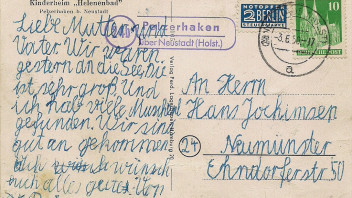 Kinderheim „Helenenbad"
Pelzerhaken b. Neustadt
Liebe Mutter und
Vater Wir waren
gestern an die See, die
ist sehr groß Und
ich hab viele Muscheln
gefunden. Wir sind
gut an gekommen
Ich wünsch
euch alles gute. Von
Pelzerhaken
über Neustadt (Holst.)
NOTOPFER
2 BERLIN
STEUERMARKE
10
DEUTSCHE POST
-3.6.5
a
An Herrn
Hans Jockimsen
(24) Neumünster
Ehndorferstr 50